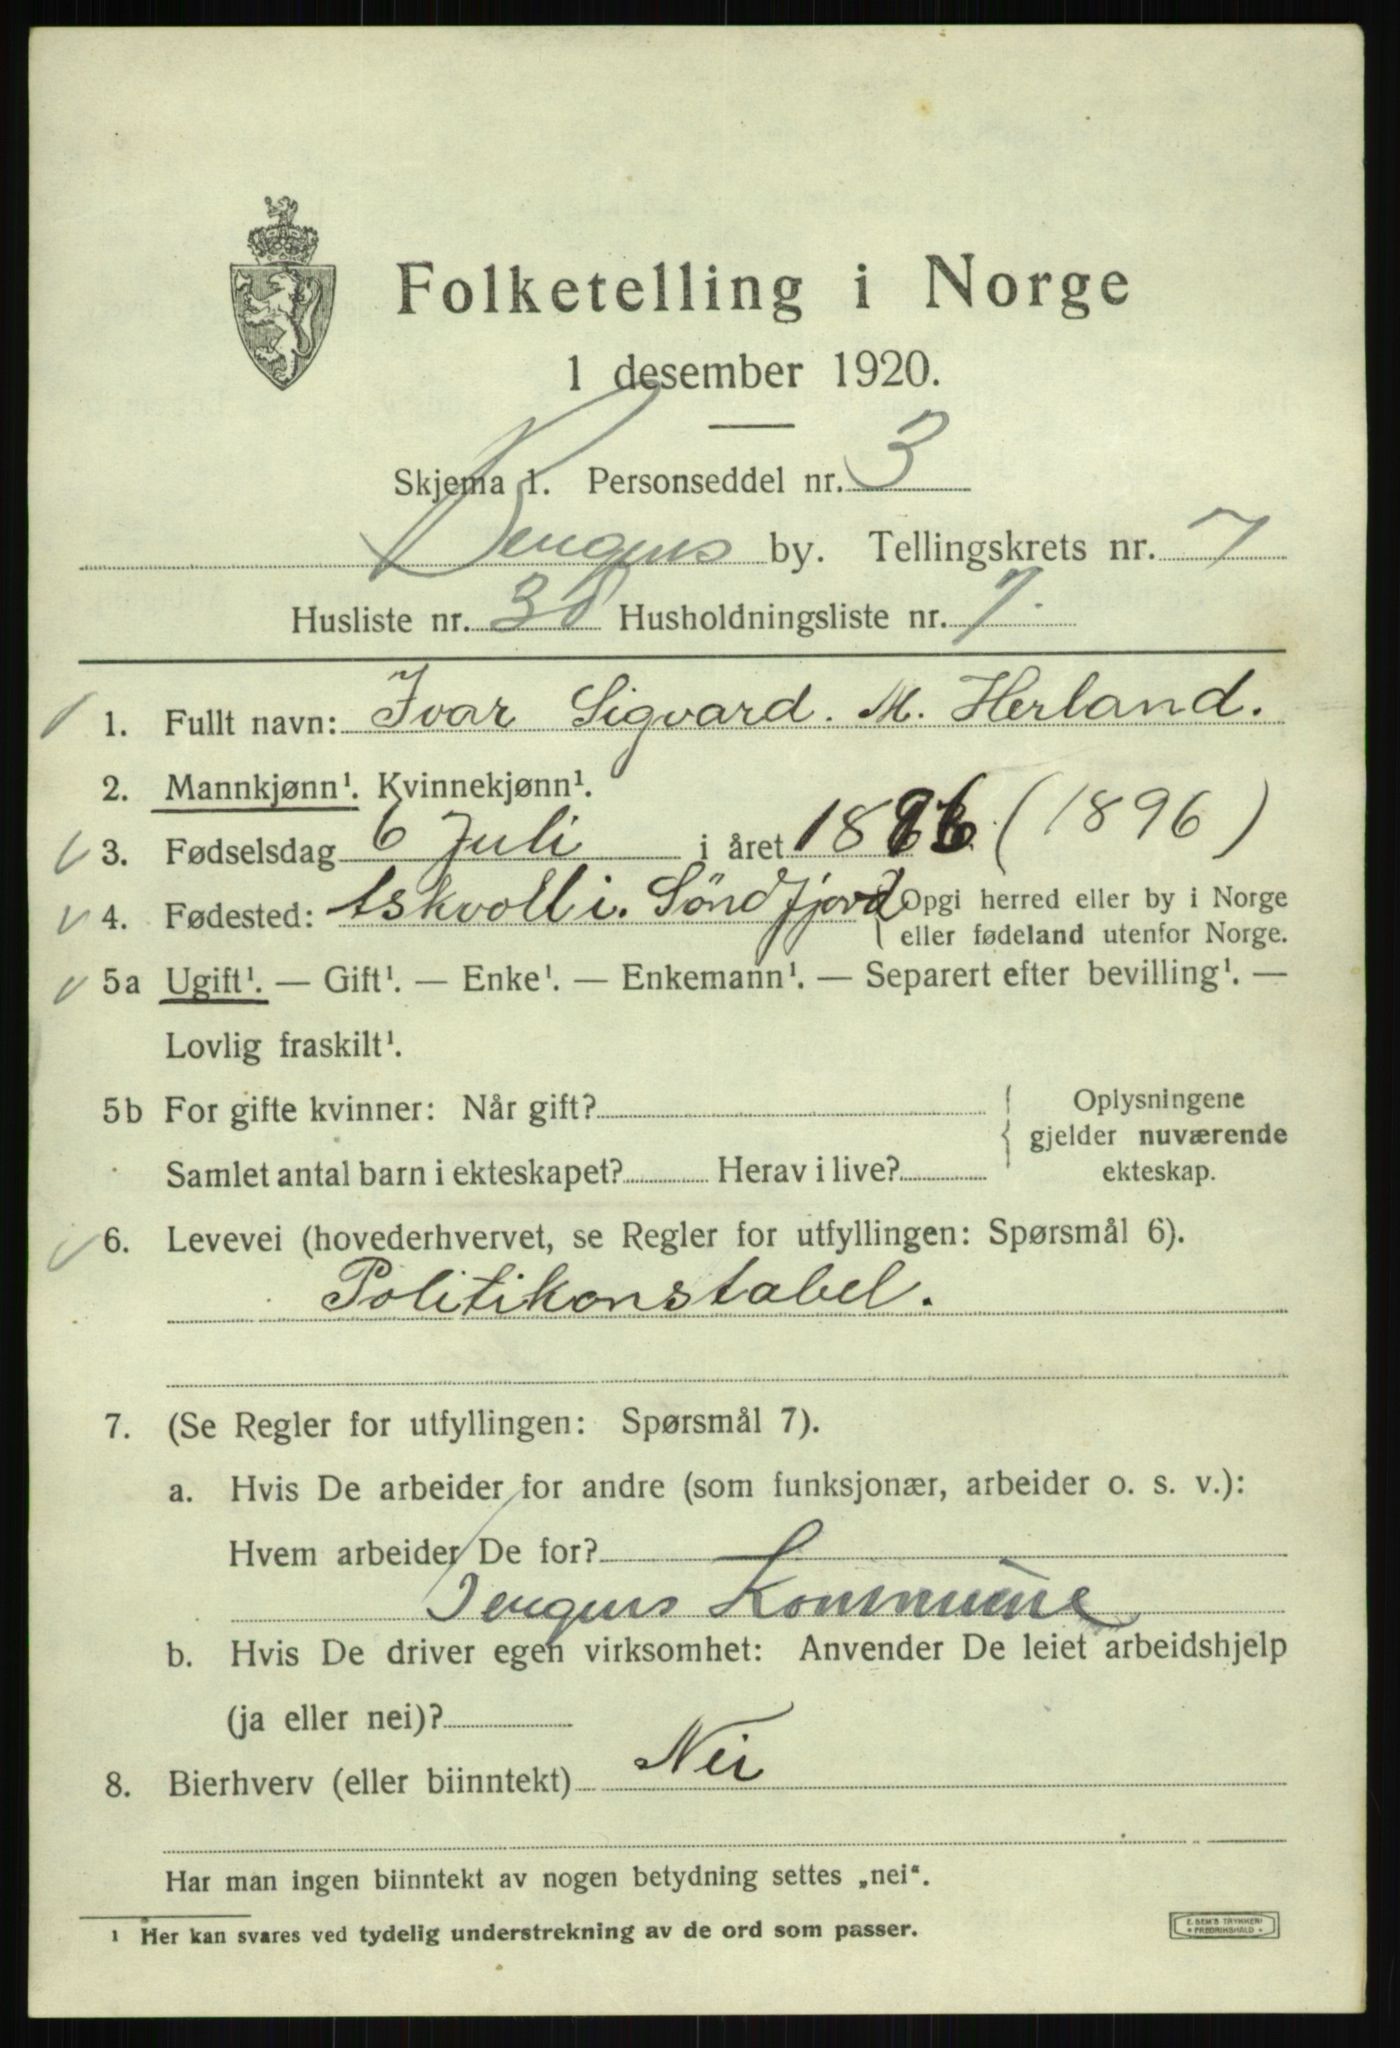 Folketelling i Norge
1 desember 1920.
Skjema 1. Personseddel nr. 3
Bergens by. Tellingskrets nr. 7
Husliste nr. 38 Husholdningsliste nr. 7.
1. Fullt navn: Ivar Sigvard. M. Herland.
2. Mannkjønn¹. Kvinnekjønn¹.
3. Fødselsdag 6 Juli i året 1896 (1896)
4. Fødested: Askvoll i. Söndfjord { Opgi herred eller by i Norge
eller fødeland utenfor Norge.
5a Ugift¹. — Gift¹. — Enke¹. — Enkemann¹. — Separert efter bevilling¹. —
Lovlig fraskilt¹.
5b For gifte kvinner: Når gift? { Oplysningene
gjelder nuværende
Samlet antal barn i ekteskapet? Herav i live? ekteskap.
6. Levevei (hovederhvervet, se Regler for utfyllingen: Spørsmål 6).
Politikonstabel.
7. (Se Regler for utfyllingen: Spørsmål 7).
a. Hvis De arbeider for andre (som funksjonær, arbeider o. s. v.):
Hvem arbeider De for?
Bergens Kommune
b. Hvis De driver egen virksomhet: Anvender De leiet arbeidshjelp
(ja eller nei)?
8. Bierhverv (eller biinntekt) Nei
Har man ingen biinntekt av nogen betydning settes „nei“.
¹ Her kan svares ved tydelig understrekning av de ord som passer.
E. SEM'S TRYKKERI
FREDRIKSHALD